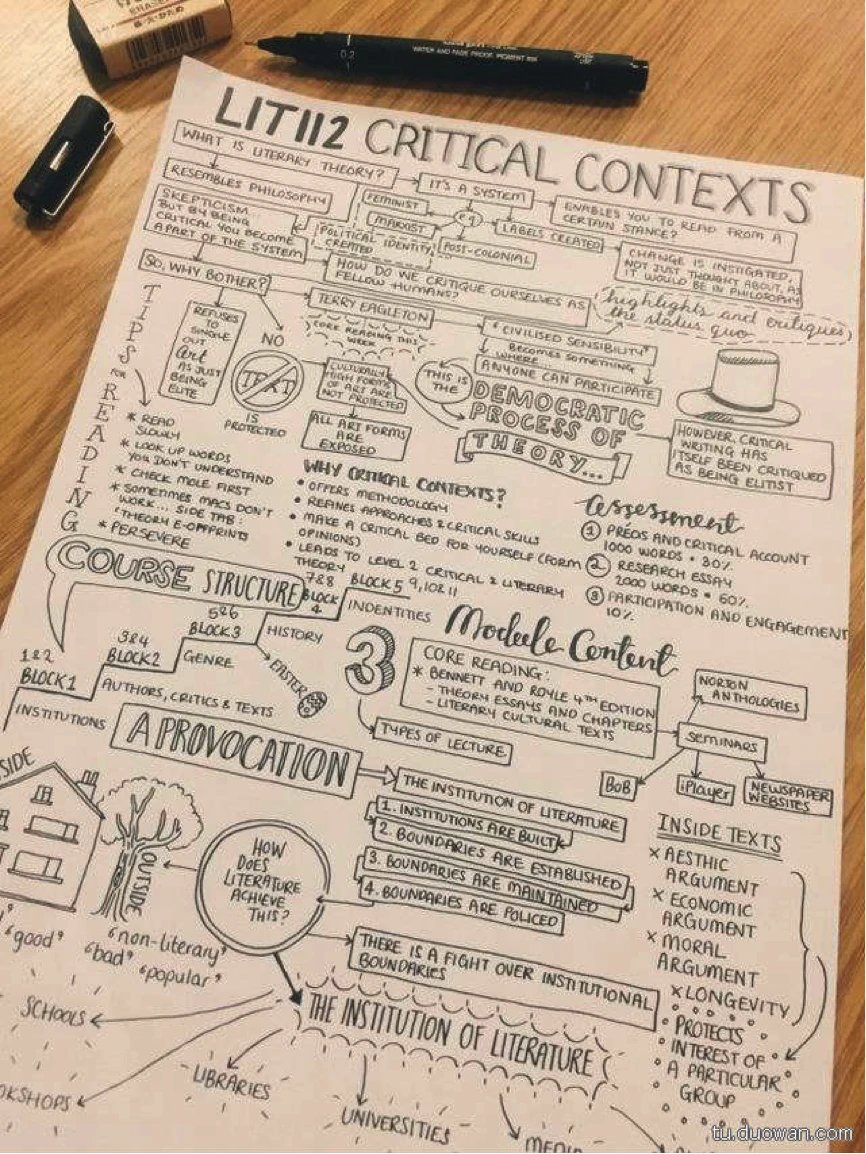 ERASER
0.2
WATER AND FADE PROOF PIGMENT INK
LIT112 CRITICAL CONTEXTS
WHAT IS LITERARY THEORY?
RESEMBLES PHILOSOPHY
SKEPTICISM...
BUT BY BEING
CRITICAL YOU BECOME
A PART OF THE SYSTEM
IT'S A SYSTEM
FEMINIST
MARXIST
eg
LABELS CREATED
POST-COLONIAL
POLITICAL IDENTITY
CREATED
ENABLES YOU TO READ FROM A
CERTAIN STANCE?
CHANGE IS INSTIGATED,
NOT JUST THOUGHT ABOUT, AS
IT WOULD BE IN PHILOSOPHY
SO, WHY BOTHER?
HOW DO WE CRITIQUE OURSELVES AS
FELLOW HUMANS?
highlights and critiques
the status quo
TERRY EAGLETON
CORE READING THIS
WEEK
'CIVILISED SENSIBILITY'
BECOMES SOMETHING
WHERE
ANYONE CAN PARTICIPATE
REFUSES
TO
SINGLE
OUT
Art
AS JUST
BEING
ELITE
NO
TEXT
IS
PROTECTED
CULTURALLY
HIGH FORMS
OF ART ARE
NOT PROTECTED
ALL ART FORMS
ARE
EXPOSED
THIS IS
THE
DEMOCRATIC
PROCESS OF
THEORY...
HOWEVER, CRITICAL
WRITING HAS
ITSELF BEEN CRITIQUED
AS BEING ELITIST
TIPS
FOR
READING
* READ
SLOWLY
* LOOK UP WORDS
YOU DON'T UNDERSTAND
* CHECK MOLE FIRST
* SOMETIMES MACS DON'T
WORK... SIDE TAB:
'THEORY E-OFFPRINTS
* PERSEVERE
WHY CRITICAL CONTEXTS?
• OFFERS METHODOLOGY
• REFINES APPROACHES & CRITICAL SKILLS
• MAKE A CRITICAL BED FOR YOURSELF (FORM
OPINIONS)
• LEADS TO LEVEL 2 CRITICAL & LITERARY
THEORY
assessment
① PRÉOS AND CRITICAL ACCOUNT
1000 WORDS • 30%
② RESEARCH ESSAY
2000 WORDS • 60%
③ PARTICIPATION AND ENGAGEMENT
10%
COURSE STRUCTURE
1&2
BLOCK1
INSTITUTIONS
3&4
BLOCK2
AUTHORS, CRITICS & TEXTS
5&6
BLOCK3
GENRE
7&8
BLOCK
4
HISTORY
BLOCK5 9, 10 & 11
INDENTITIES
EASTER
Module Content
3
CORE READING:
* BENNETT AND ROYLE 4TH EDITION
- THEORY ESSAYS AND CHAPTERS
- LITERARY CULTURAL TEXTS
TYPES OF LECTURE
NORTON
ANTHOLOGIES
SEMINARS
BoB
iPlayer
NEWSPAPER
WEBSITES
A PROVOCATION
THE INSTITUTION OF LITERATURE
1. INSTITUTIONS ARE BUILT
2. BOUNDARIES ARE ESTABLISHED
3. BOUNDARIES ARE MAINTAINED
4. BOUNDARIES ARE POLICED
THERE IS A FIGHT OVER INSTITUTIONAL
BOUNDARIES
SIDE
OUTSIDE
HOW
DOES
LITERATURE
ACHIEVE
THIS?
'good'
'non-literary'
'bad'
'popular'
INSIDE TEXTS
× AESTHIC
ARGUMENT
× ECONOMIC
ARGUMENT
× MORAL
ARGUMENT
× LONGEVITY
PROTECTS
INTEREST OF
A PARTICULAR
GROUP
THE INSTITUTION OF LITERATURE
SCHOOLS
OKSHOPS
LIBRARIES
UNIVERSITIES
MEDIA
tu.duowan.com